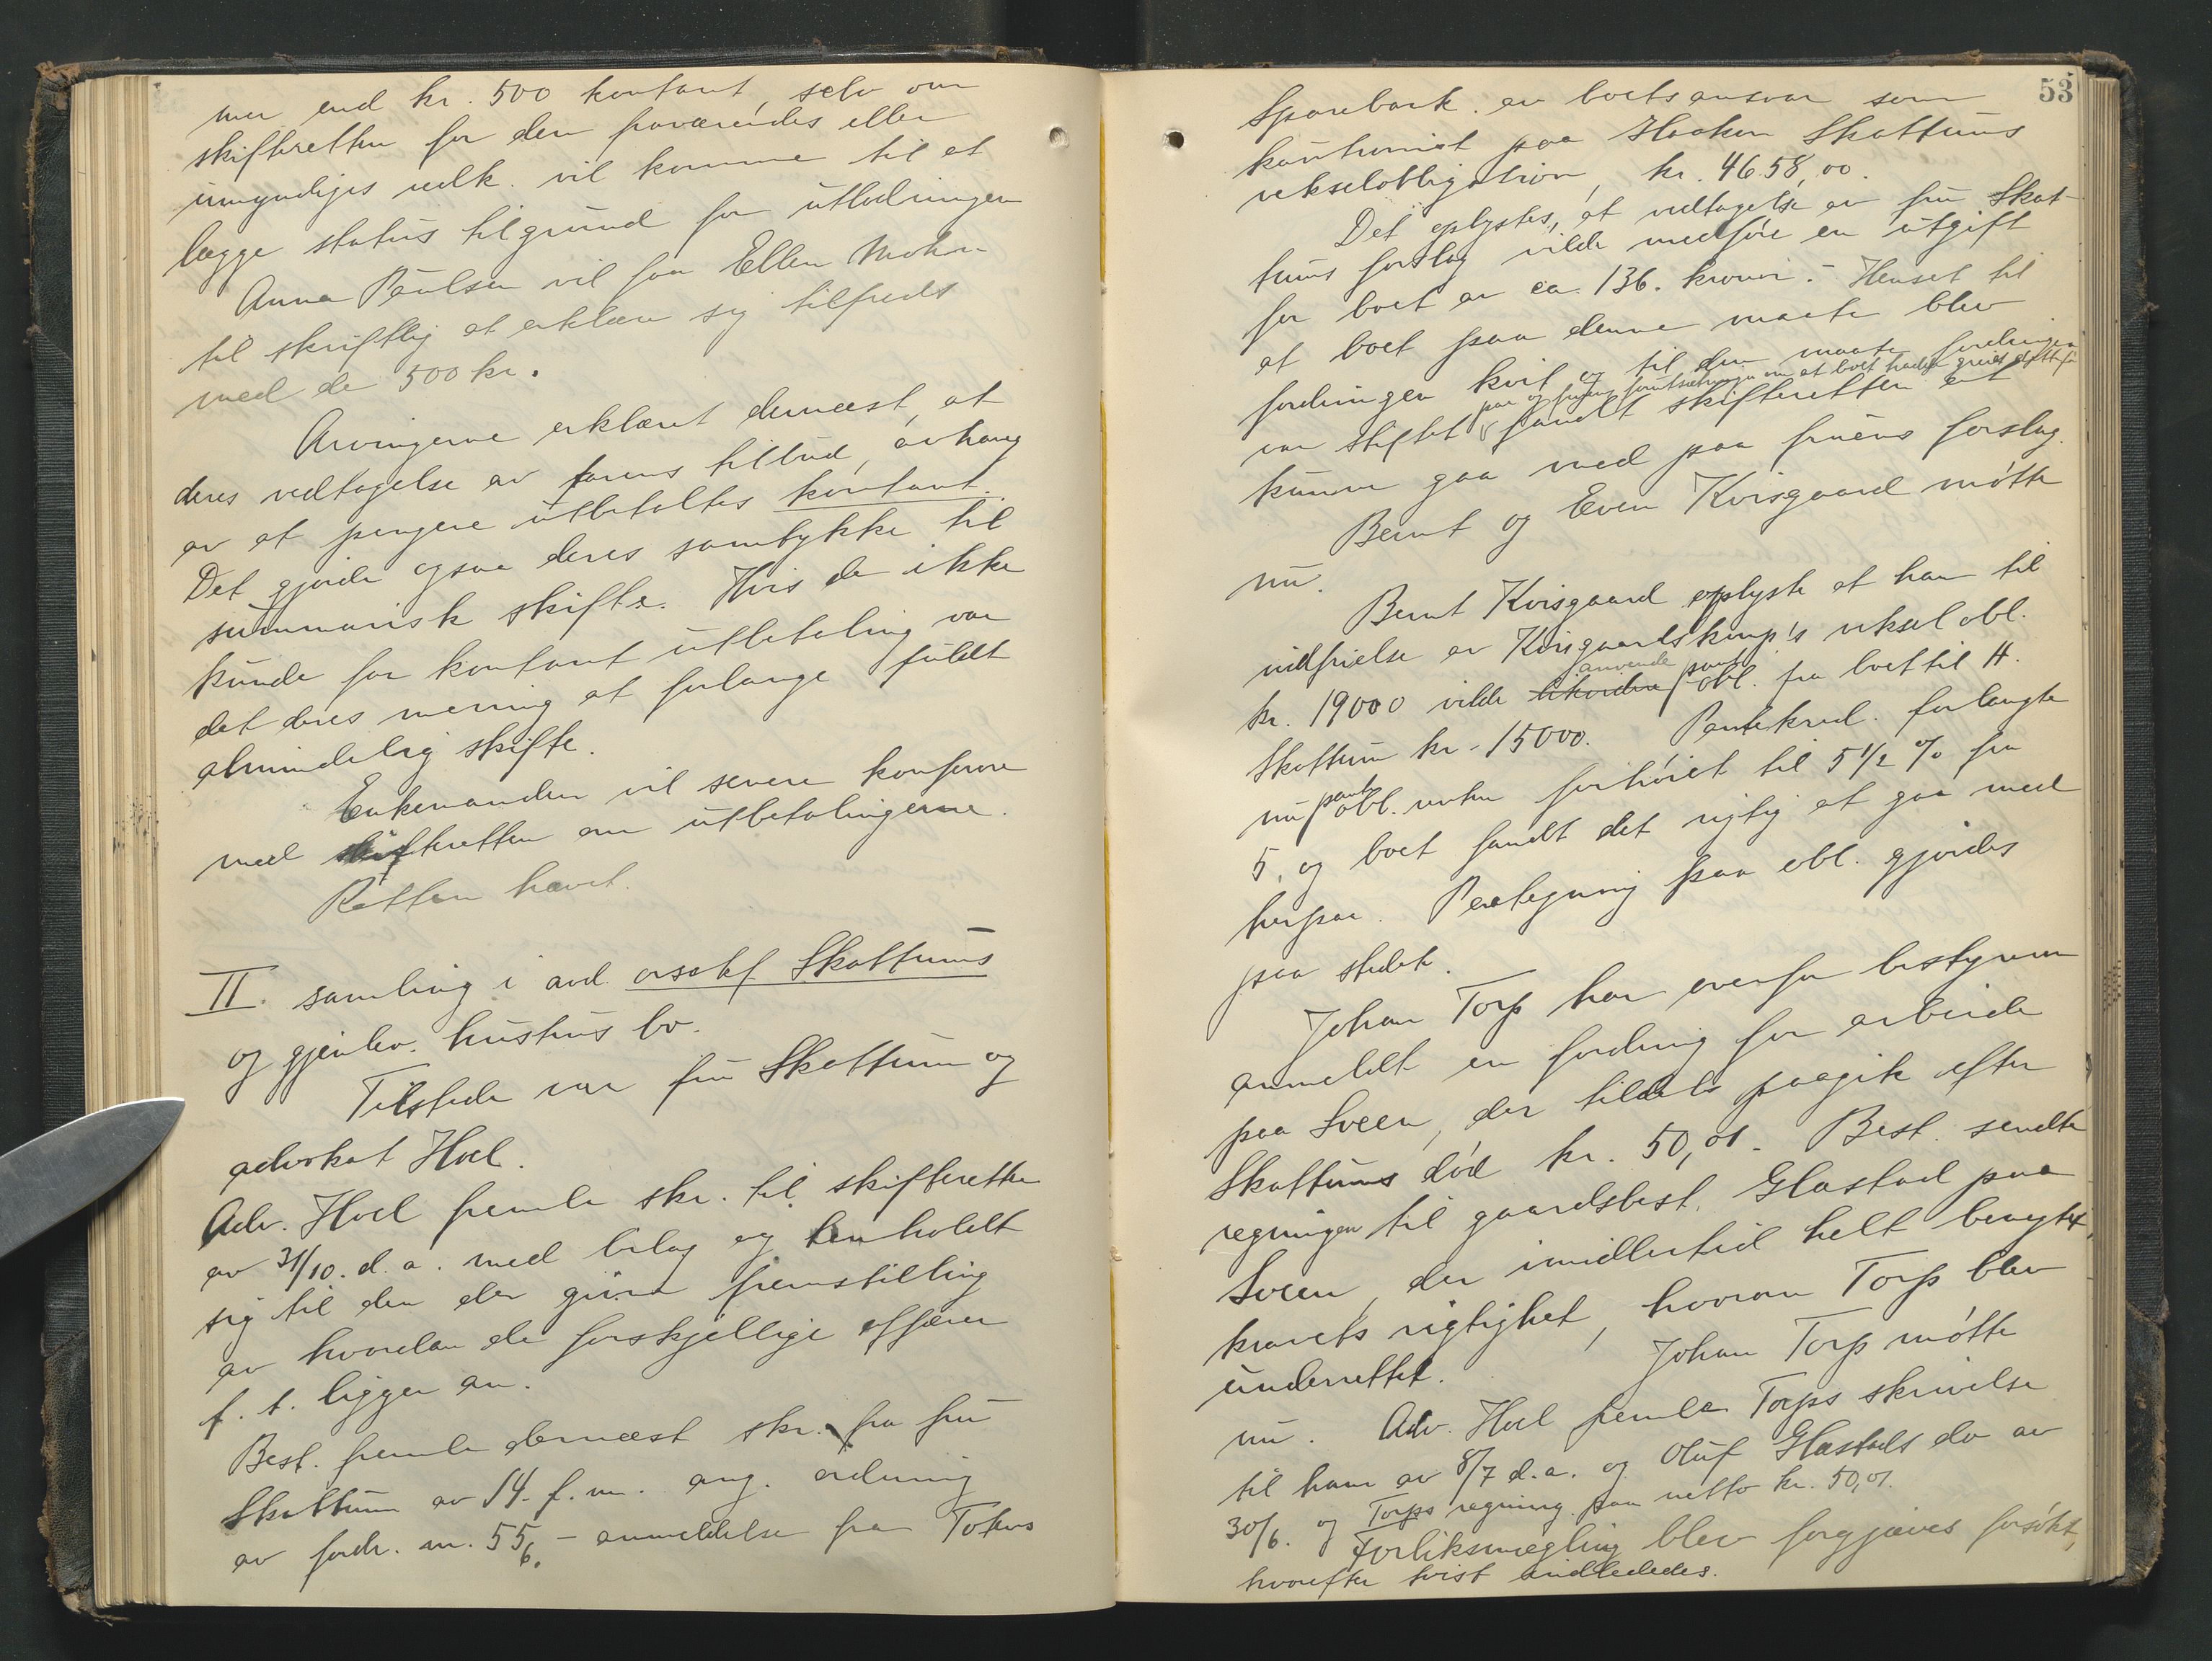 mer end kr. 500 kontant, selv om
skifteretten for den fraværendes eller
umyndiges vedk. vil komme til at
lægge status tilgrund for utlodningen
Anna Paulsen vil faa Ellen Mohn
til skriftlig at erklære sig tilfreds
med de 500 kr.
Arvingerne erklæret dernæst, at
deres vedtagelse av farens tilbud, avhang
av at pengene utbetaltes kontant.
Det gjorde ogsaa deres samtykke til
summarisk skifte. Hvis de ikke
kunde faa kontant utbetaling var
det deres mening at forlange fuldt
almindelig skifte.
Enkemanden vil senere konferere
med skifteretten om utbetalingerne.
Retten hævet.
II. samling i avd. Skattums
og gjenlev. hustrus bo.
Tilstede var fru Skattum og
advokat Hoel.
Adv. Hoel fremla skr. til skifteretten
av 31/10. d. a. med bilag og henholdt
sig til den der givne fremstilling
av hvordan de forskjellige affærer
f. t. ligger an.
Best. fremla dernæst skr. fra fru
Skattum av 14. f. m. ang. ordning
av fordr. nr. 55 6. - anmeldelse fra Totens
53
Sparebank av boets ansvar som
kautionist paa Haakon Skattums
vekselobligation, kr. 4658,00.
Det oplystes, at vedtagelse av fru Skat-
tums forslag vilde medføre en utgift
for boet av ca. 136. kroner. - Henset til
at boet paa denne maate blev
fordringen kvit og til den maate fordringen
paa og fruens forutsætninger om at boet hadde greid
var stiftet fandt skifteretten at
kunne gaa med paa fruens forslag.
Bernt og Even Kvisgaard møtte
nu.
Bernt Kvisgaard oplyste at han til
indfrielse av Kvisgaardskomp's veksel obl.
kr. 19000 vilde likvidere anvende pant obl. fra boet til H.
Skattum kr. 15000. Pantekred. forlangte
nu pant obl. renten forhøiet til 5 1/2 % fra
5, og boet fandt det rigtig at gaa med
herpaa. Paategning paa obl. gjordes
paa stedet.
Johan Torp har overfor bestyreren
anmeldt en fordring for arbeide
paa Sveen, der tildels paagik efter
Skattums død kr. 50,01. Best. sendte
regningen til gaardsbest. Glastad paa
Sveen, der imidlertid helt benegtet
kravets rigtighet, hvorom Torp blev
underrettet. Johan Torp møtte
nu. Adv. Hoel fremla Torps skrivelse
til ham av 8/7 d.a. og Oluf Glastads do av
30/6. og Torps regning paa netto kr. 50,01.
Forliksmægling blev forgjæves forsøkt,
hvorefter tvist indlededes.